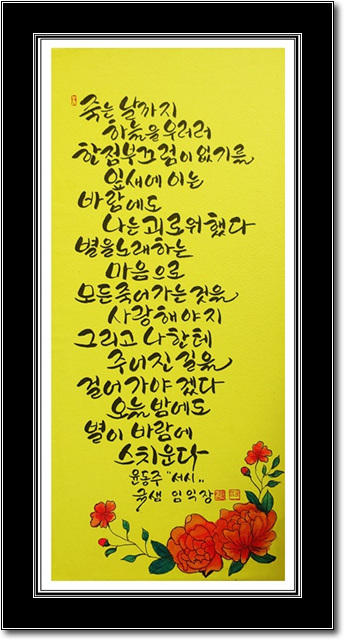 죽는 날까지
하늘을 우러러
한점 부끄럼이 없기를
잎새에 이는
바람에도
나는 괴로워했다
별을 노래하는
마음으로
모든 죽어가는 것을
사랑해야지
그리고 나한테
주어진 길을
걸어가야겠다
오늘밤에도
별이 바람에
스치운다
윤동주 "서시"
임익장